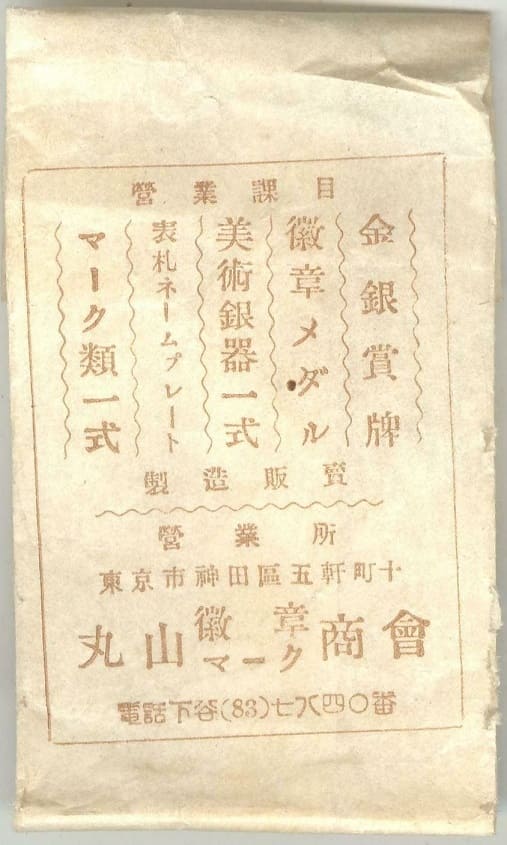 營業課目
金銀賞牌
徽章メダル
美術銀器一式
表札ネームプレート
マーク類一式
製造販賣
營業所
東京市神田區五軒町十
丸山徽章マーク商會
電話下谷(83)七八四〇番